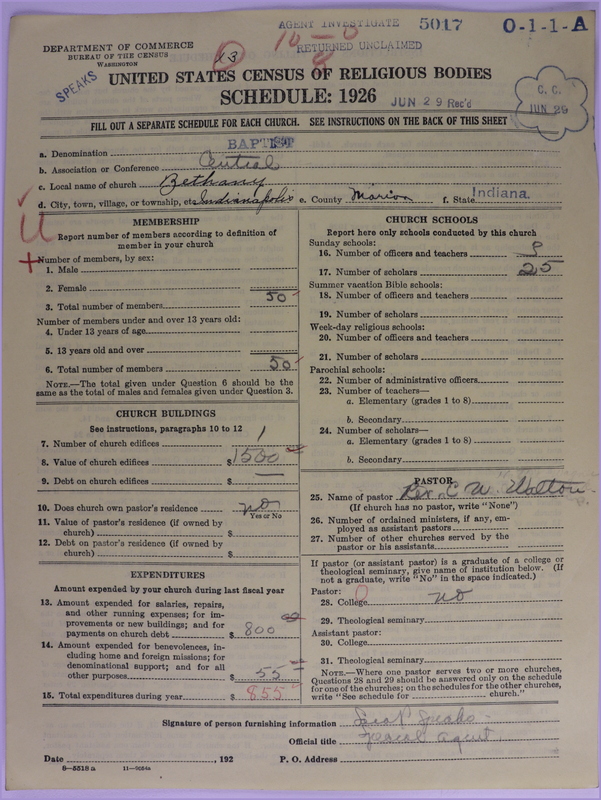 AGENT INVESTIGATE 5017 O-1-1-A
RETURNED UNCLAIMED
DEPARTMENT OF COMMERCE
BUREAU OF THE CENSUS
WASHINGTON
SPEAKS
UNITED STATES CENSUS OF RELIGIOUS BODIES
SCHEDULE: 1926
JUN 29 Rec'd
C. C.
JUN 29
FILL OUT A SEPARATE SCHEDULE FOR EACH CHURCH. SEE INSTRUCTIONS ON THE BACK OF THIS SHEET
a. Denomination BAPTIST
b. Association or Conference Central
c. Local name of church Bethany
d. City, town, village, or township, etc. Indianapolis e. County Marion f. State Indiana.
MEMBERSHIP
Report number of members according to definition of
member in your church
Number of members, by sex:
1. Male
2. Female
3. Total number of members 50
Number of members under and over 13 years old:
4. Under 13 years of age
5. 13 years old and over
6. Total number of members 50
NOTE.—The total given under Question 6 should be
same as the total of males and females given under Question 3.
CHURCH BUILDINGS
See instructions, paragraphs 10 to 12
7. Number of church edifices 1
8. Value of church edifices $1500
9. Debt on church edifices $ —
10. Does church own pastor's residence no
Yes or No
11. Value of pastor's residence (if owned by
church) $
12. Debt on pastor's residence (if owned by
church) $
EXPENDITURES
Amount expended by your church during last fiscal year
13. Amount expended for salaries, repairs,
and other running expenses; for im-
provements or new buildings; and for
payments on church debt $ 800
14. Amount expended for benevolences, in-
cluding home and foreign missions; for
denominational support; and for all
other purposes $ 55
15. Total expenditures during year $ 855
CHURCH SCHOOLS
Report here only schools conducted by this church
Sunday schools:
16. Number of officers and teachers
17. Number of scholars 25
Summer vacation Bible schools:
18. Number of officers and teachers
19. Number of scholars
Week-day religious schools:
20. Number of officers and teachers
21. Number of scholars
Parochial schools:
22. Number of administrative officers
23. Number of teachers—
a. Elementary (grades 1 to 8)
b. Secondary
24. Number of scholars—
a. Elementary (grades 1 to 8)
b. Secondary
PASTOR
25. Name of pastor Rev. C. W. Walton
(If church has no pastor, write "None")
26. Number of ordained ministers, if any, em-
ployed as assistant pastors
27. Number of other churches served by the
pastor or his assistants
If pastor (or assistant pastor) is a graduate of a college or
theological seminary, give name of institution below. (If
not a graduate, write "No" in the space indicated.)
Pastor:
28. College no
29. Theological seminary
Assistant pastor:
30. College
31. Theological seminary
NOTE.—Where one pastor serves two or more churches,
Questions 28 and 29 should be answered only on the schedule
for one of the churches; on the schedules for the other churches,
write "See schedule for church."
Signature of person furnishing information Speaks
Official title Special Agent
Date , 192 P. O. Address
8—5518 a